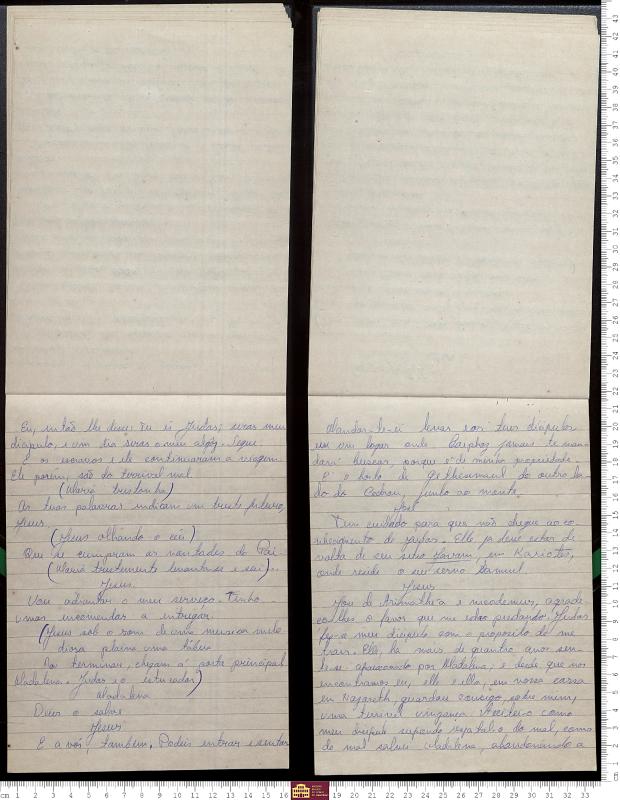 Eu, então lhe disse: Tu és Judas; serás meu
discipulo, e um dia serás o meu algoz. Segue.
E os escravos e ele continuaram a viagem
Ele porém, são do terrivel mal
(Maria tristonha)
As tuas palavras indicam um triste futuro,
Jesus.
(Jesus olhando o céu)
Que se cumpram as vontades do Pai.
(Maria tristemente levanta-se e sai).
Jesus.
Vou adiantar o meu serviço. Tenho
umas encomendas a entregar.
(Jesus sob o som de uma musica melo
diosa plaina uma tábua
Ao terminar, chegam á porta principal
Madalena. Judas e o )
Madalena
Deus o salve
Jesus
E a vós, também. Podeis entrar e sentar
Mandar-te-ei levar por teus discipulos
em um logar onde Caiphaz jamais te man
dará buscar, porque é de minha propriedade.
É o horto de do outro la-
do do Cedron, junto ao monte.
José
Tem cuidado para que não chegue ao co-
nhecimento de . Elle já deve estar de
volta de seu sitio , em Kariotes,
onde reside o seu servo Samuel
Jesus
José de Arimathéa e Nicodemus, agrade
ço-lhes o favor que me estão prestando. Judas
fez-se meu discipulo com o proposito de me
trair. Elle, ha mais de quatro anos sen-
te-se apaixonado por Madalena, e desde que nos
encontramos eu, elle e ella, em nossa cassa
em Nazareth, guardou consigo, sobre mim,
uma terrivel vingança Aceitei-o como
meu discipulo do mal, como
do mal salvei Madalena, abandonando a